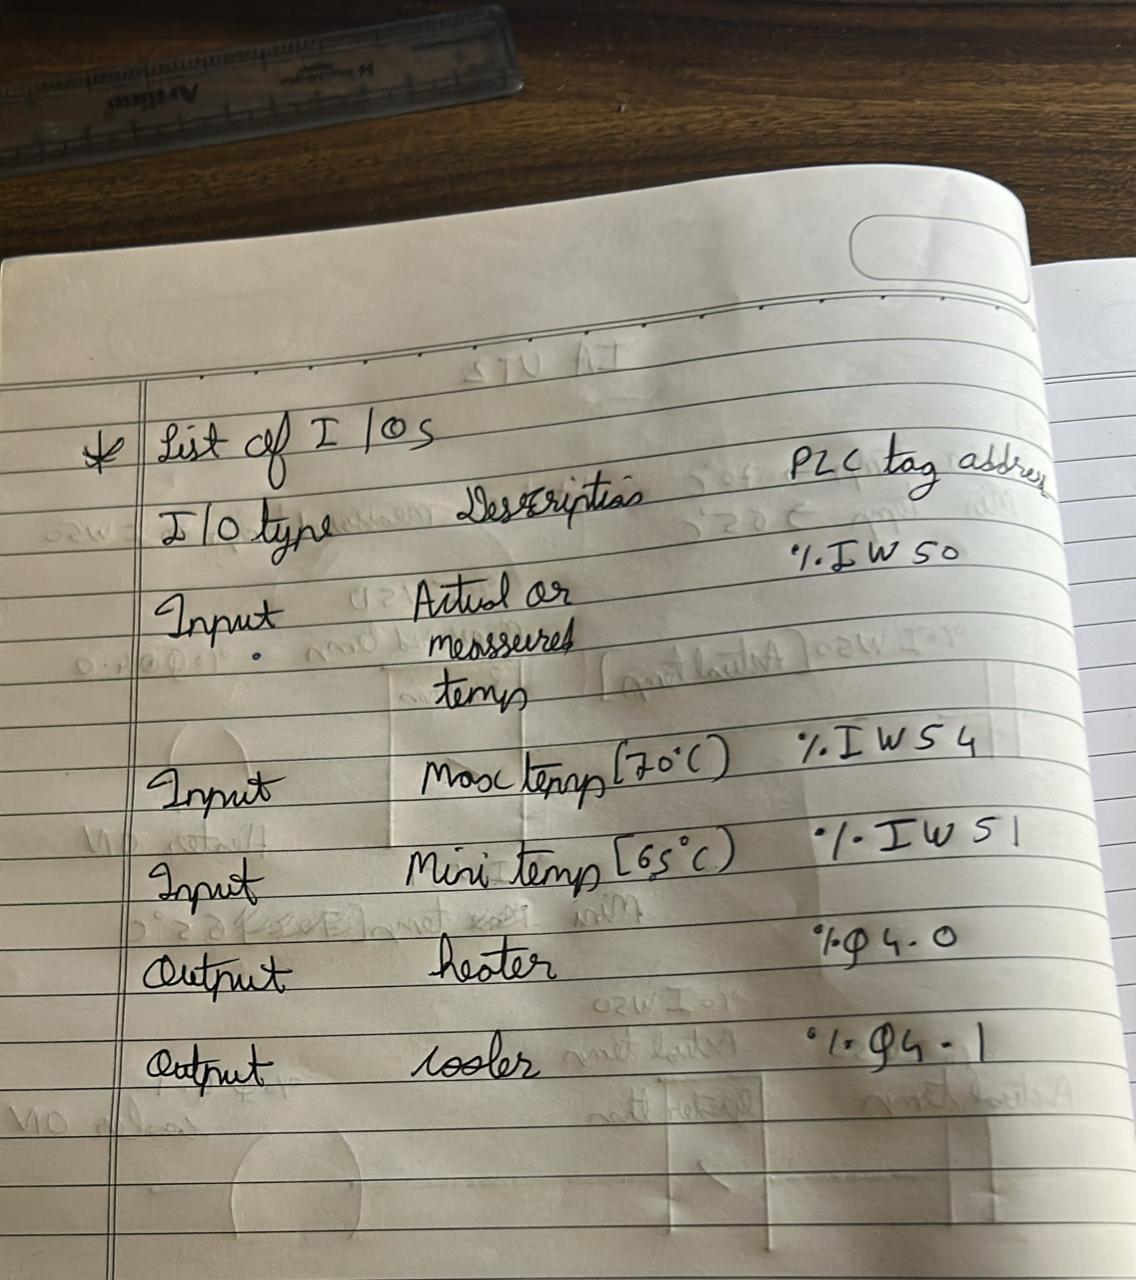 * List of I/Os
I/O type Description PLC tag address
Input Actual or %IW50
meassured
temp
Input Max temp [70°C) %IW54
Input Mini temp [65°C) %IW51
Output heater %Q4.0
Output cooler %Q4.1